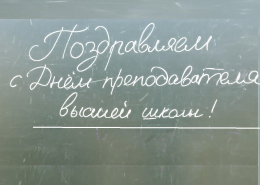 Поздравляем
с Днём преподавателя
высшей школы!